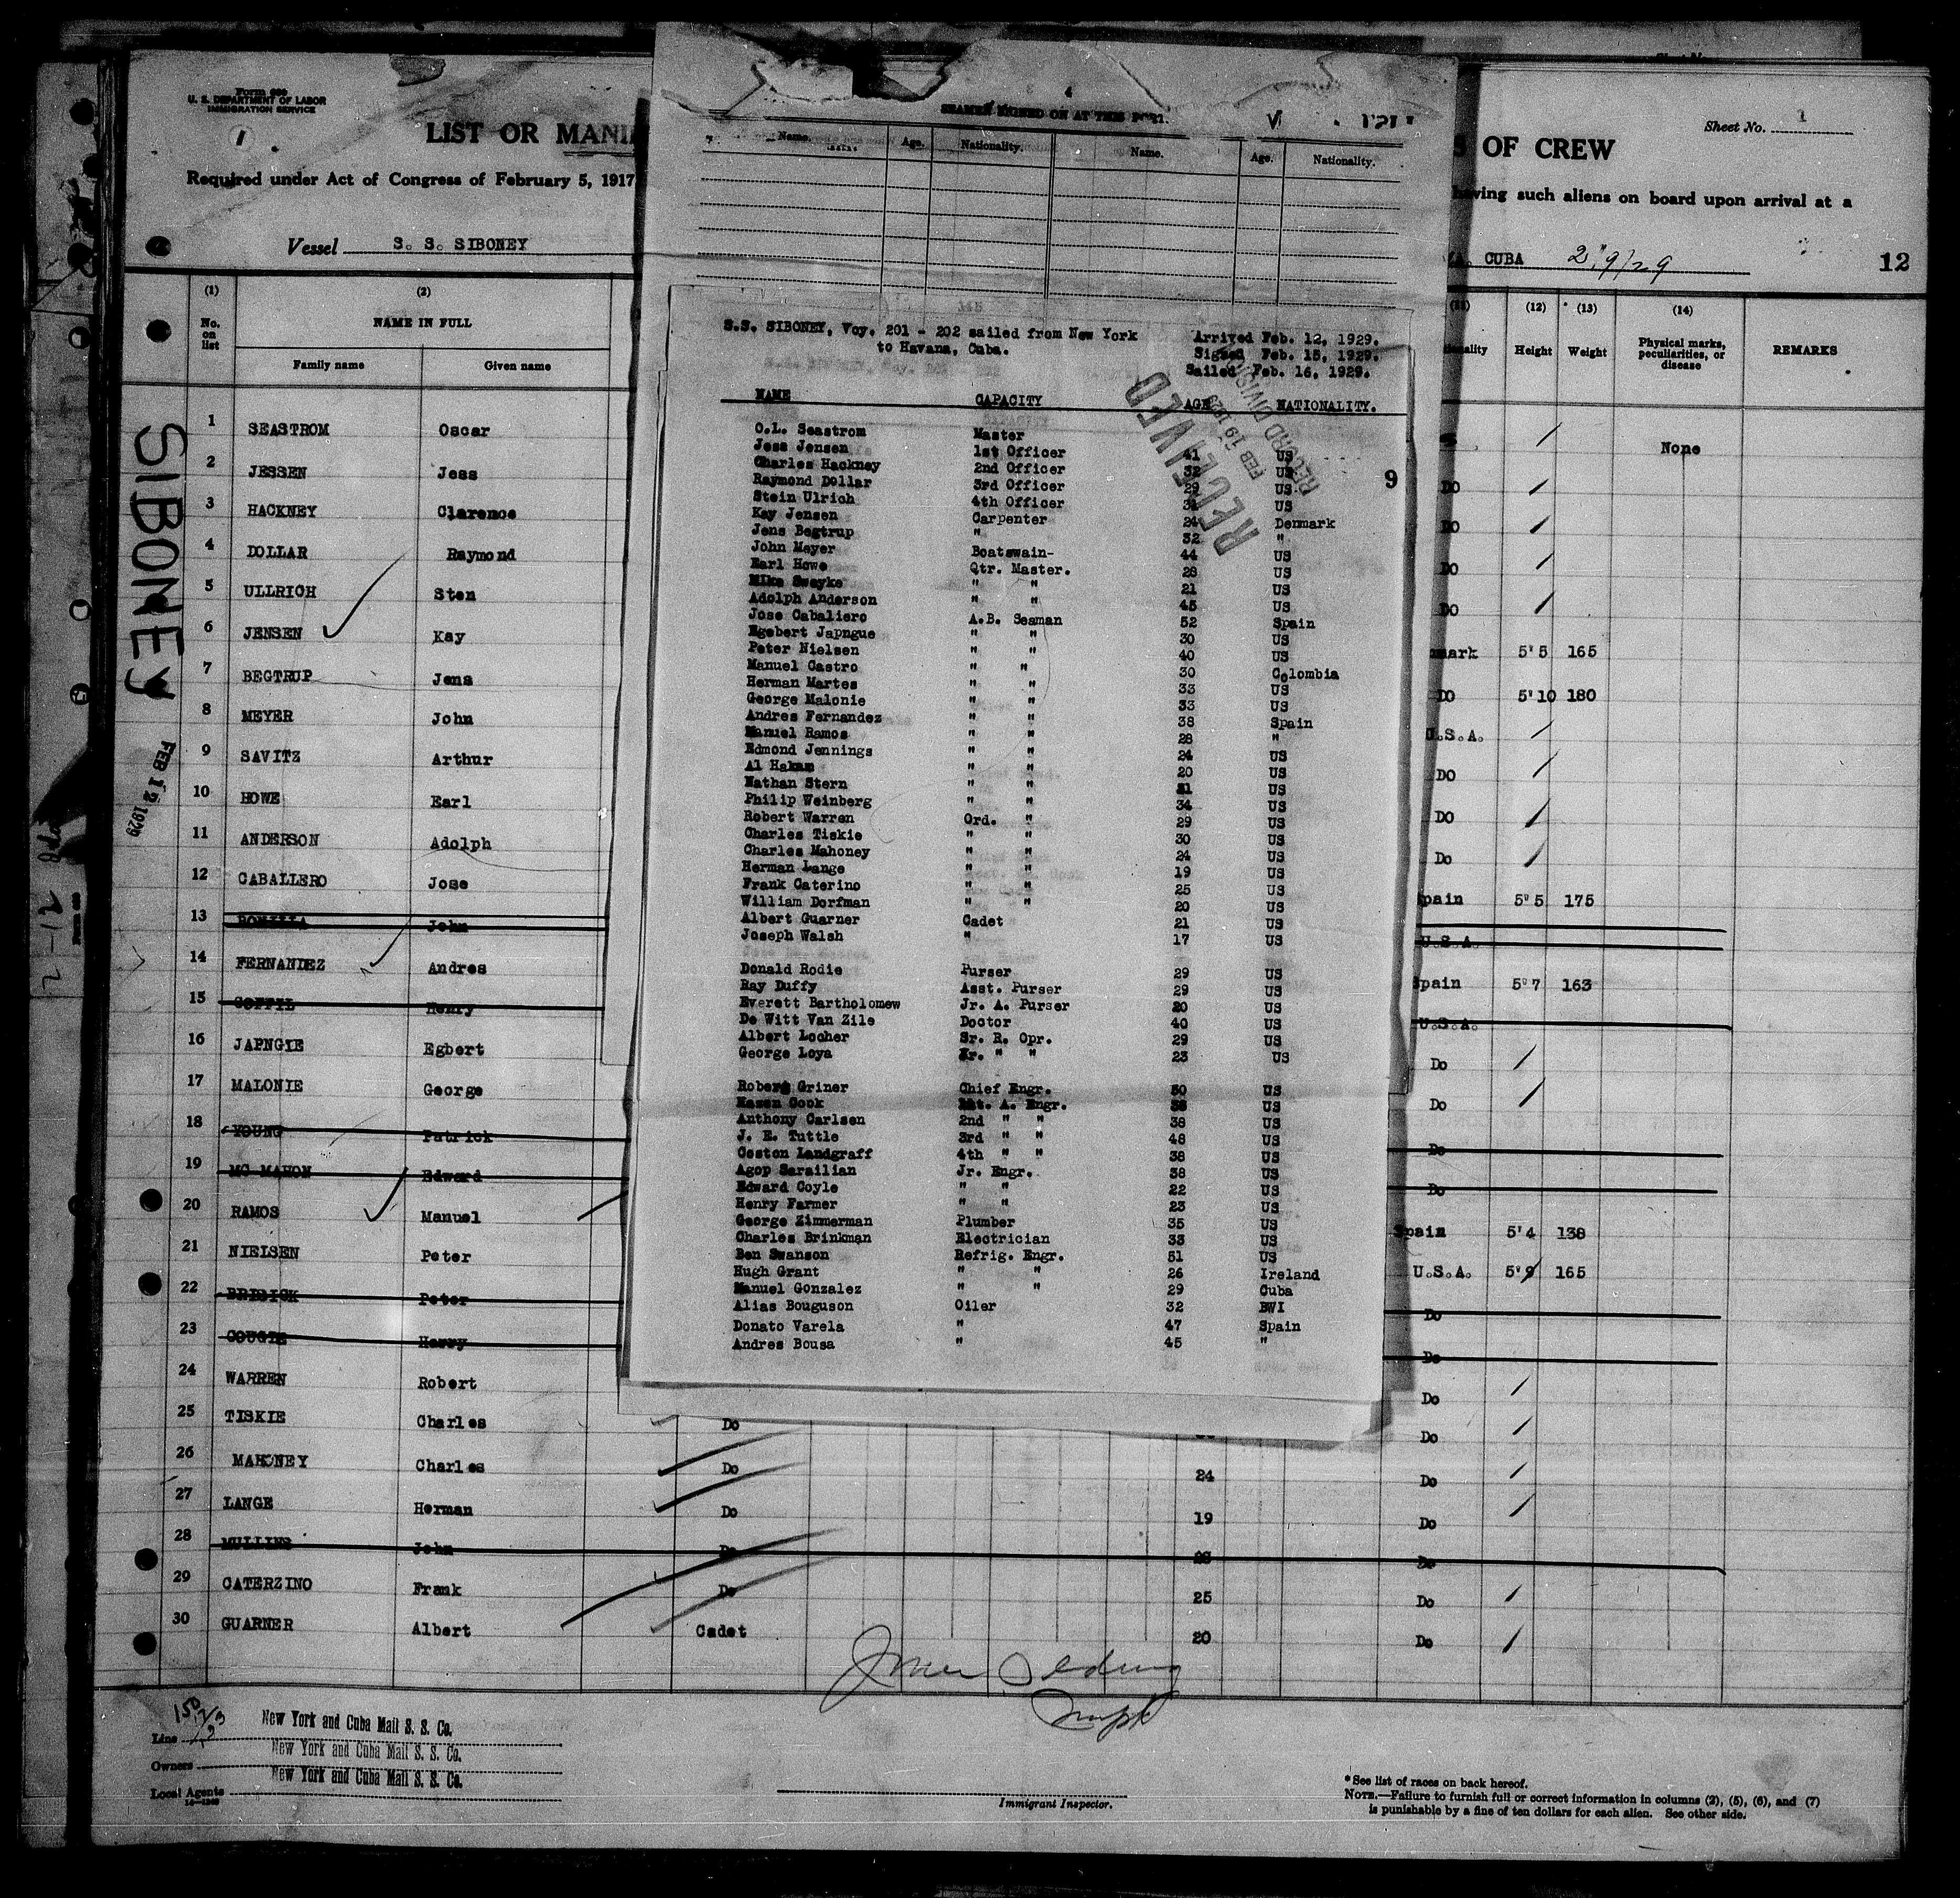 Form 680
U. S. DEPARTMENT OF LABOR
IMMIGRATION SERVICE
1
LIST OR MANI
Required under Act of Congress of February 5, 1917
Vessel S. S. SIBONEY
S OF CREW
Sheet No. 1
having such aliens on board upon arrival at a
CUBA 2/9/29
12
SIBONEY
FEB 12 1929
SEAMEN SIGNED ON AT THIS PORT.
Name. Age. Nationality. Name. Age. Nationality.
S.S. SIBONEY, Voy. 201 - 202 sailed from New York
to Havana, Cuba.
Arrived Feb. 12, 1929.
Signed Feb. 15, 1929.
Sailed Feb. 16, 1929.
RECEIVED
FEB 19 1929
RECORD DIVISION
9
NAME CAPACITY AGE NATIONALITY.
O.L. Seastrom Master
Jess Jensen 1st Officer 41 US
Charles Hackney 2nd Officer 32 US
Raymond Dollar 3rd Officer 29 US
Stein Ulrich 4th Officer US
Kay Jensen Carpenter 24 Denmark
Jens Begtrup " 32 "
John Meyer Boatswain- 44 US
Earl Howe Qtr. Master. 28 US
Mike Sweyke " " 21 US
Adolph Anderson " " 45 US
Jose Caballero A.B. Seaman 52 Spain
Egebert Japngue " " 30 US
Peter Nielsen " " 40 US
Manuel Castro " " 30 Colombia
Herman Martes " " 33 US
George Malonie " " 33 US
Andres Fernandez " " 38 Spain
Manuel Ramos " " 28 "
Edmond Jennings " " 24 US
Al Hakam " " 20 US
Nathan Stern " " 21 US
Philip Weinberg " " 34 US
Robert Warren Ord. " 29 US
Charles Tiskie " " 30 US
Charles Mahoney " " 24 US
Herman Lange " " 19 US
Frank Caterino " " 25 US
William Dorfman " " 20 US
Albert Guarner Cadet 21 US
Joseph Walsh " 17 US
Donald Rodie Purser 29 US
Ray Duffy Asst. Purser 29 US
Everett Bartholomew Jr. A. Purser 20 US
De Witt Van Zile Doctor 40 US
Albert Locher Sr. R. Opr. 29 US
George Loya Jr. " " 23 US
Robert Griner Chief Engr. 50 US
Hazen Cook 1st. A. Engr. 38 US
Anthony Carlsen 2nd " " 38 US
J. E. Tuttle 3rd " " 48 US
Coston Landgraff 4th " " 38 US
Agop Sarailian Jr. Engr. 38 US
Edward Coyle " " 22 US
Henry Farmer " " 23 US
George Zimmerman Plumber 35 US
Charles Brinkman Electrician 33 US
Ben Swanson Refrig. Engr. 51 US
Hugh Grant " " 26 Ireland
Manuel Gonzalez " " 29 Cuba
Alias Bouguson Oiler 32 BWI
Donato Varela " 47 Spain
Andres Bousa " 45 "
(1) (2) (11) (12) (13) (14)
No. on list NAME IN FULL Height Weight Physical marks, peculiarities, or disease REMARKS
Family name Given name
1 SEASTROM Oscar None
2 JESSEN Jess DO
3 HACKNEY Clarence DO
4 DOLLAR Raymond DO
5 ULLRICH Sten DO
6 JENSEN Kay mark 5'5 165
7 BEGTRUP Jens DO 5'10 180
8 MEYER John U.S.A.
9 SAVITZ Arthur DO
10 HOWE Earl DO
11 ANDERSON Adolph Do
12 CABALLERO Jose Spain 5'5 175
13 John U.S.A.
14 FERNANDEZ Andres Spain 5'7 163
15 Henry U.S.A.
16 JAPNGIE Egbert Do
17 MALONIE George Do
18 YOUNG Patrick Do
19 MC MAHON Edward Do
20 RAMOS Manuel Spain 5'4 138
21 NIELSEN Peter U.S.A. 5'9 165
22 Peter Do
23 Harry Do
24 WARREN Robert Do
25 TISKIE Charles Do Do
26 MAHONEY Charles Do 24 Do
27 LANGE Herman Do 19 Do
28 MULLINS John Do 28 Do
29 CATERZINO Frank Do 25 Do
30 GUARNER Albert Cadet 20 Do
Line New York and Cuba Mail S. S. Co.
Owners New York and Cuba Mail S. S. Co.
Local Agents New York and Cuba Mail S. S. Co.
Immigrant Inspector.
*See list of races on back hereof.
NOTE.—Failure to furnish full or correct information in columns (2), (5), (6), and (7)
is punishable by a fine of ten dollars for each alien. See other side.